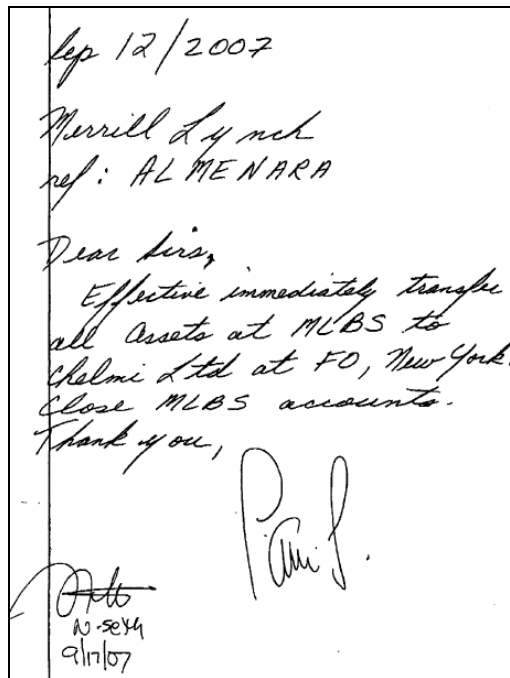 Sep 12/2007
Merrill Lynch
ref: ALMENARA
Dear Sirs,
Effective immediately transfer
all assets at MLBS to
Chelmi Ltd at FO, New York.
Close MLBS accounts.
Thank you,
N-Seth
9/17/07